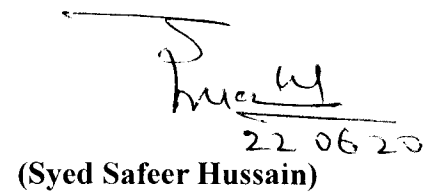 22 06 20
(Syed Safeer Hussain)